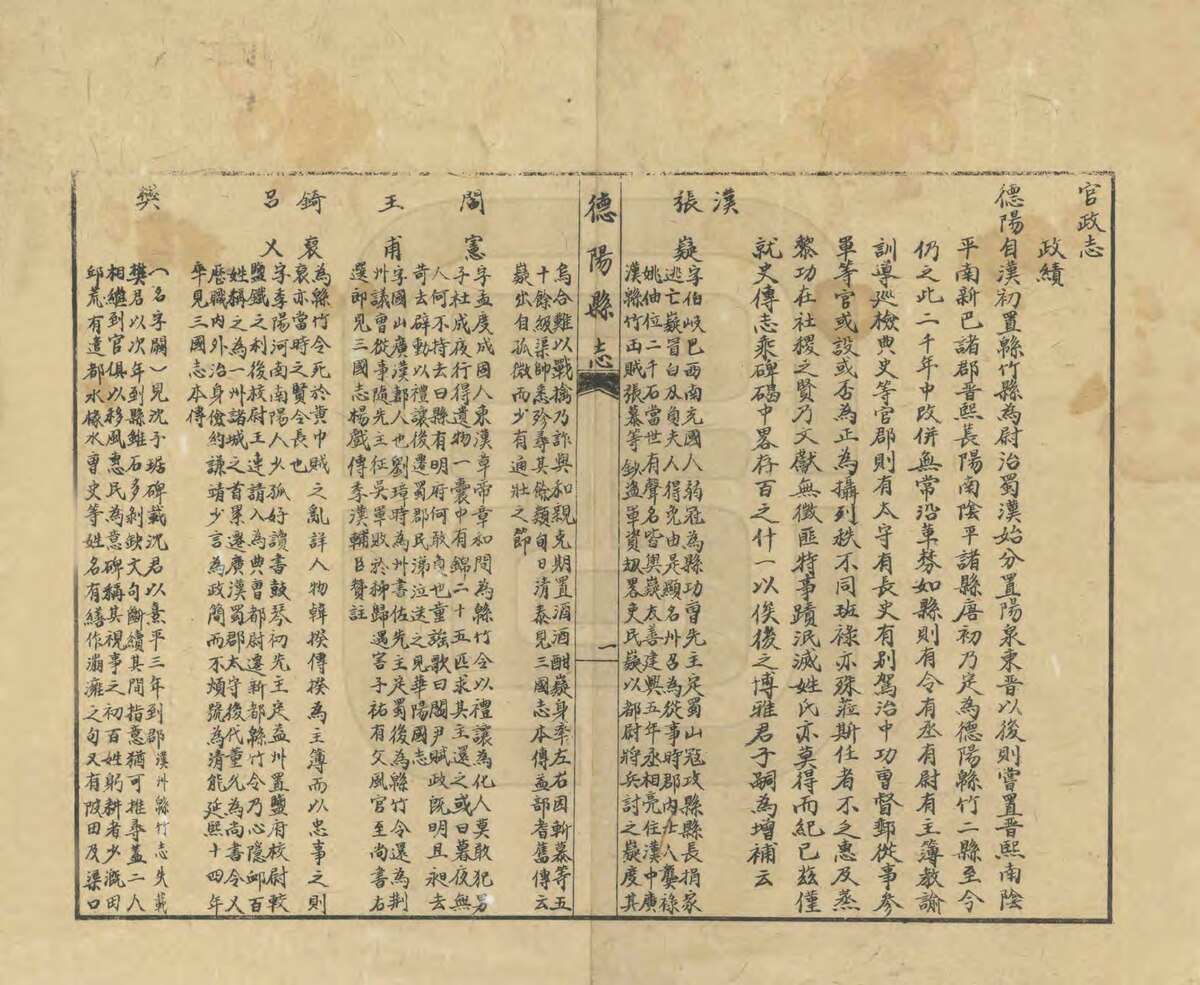 官政志
政績
德陽自漢初置縣竹縣為尉治蜀漢始分置陽泉東晉以後則嘗置晉熙南陰
平南新巴諸郡晉熙長陽南陰平諸縣唐初乃定為德陽縣竹二縣至今
仍之此二千年中改併無常沿革棼如縣則有令有丞有尉有主簿教諭
訓導巡檢典史等官郡則有太守有長史有別駕治中功曹督郵從事參
軍等官或設或否為正為攝列秩不同班祿亦殊蒞斯任者不之惠及蒸
黎功在社稷之賢乃文獻無徵匪特事蹟泯滅姓氏亦莫得而紀已茲僅
就史傳志乘碑碣中畧存百之什一以俟後之博雅君子嗣為增補云
漢
張
嶷字伯岐巴西南充國人弱冠為縣功曹先主定蜀山冠攻縣縣長捐家
逃亡嶷冒白刃負夫人得免由是顯名州召為從事時郡內士人龔祿
姚伷位二千石當世有聲名皆與嶷友善建興五年丞相亮住漢中廣
漢緜竹山賊張慕等鈔盜軍資刼畧吏民嶷以都尉將兵討之嶷度其
德陽縣志
一
烏合難以戰擒乃詐與和親克期置酒酒酣嶷身率左右因斬慕等五
十餘級渠帥悉殄尋其餘類旬日清泰見三國志本傳益部耆舊傳云
嶷出自孤微而少有通壯之節
閻憲
字孟度成固人東漢章帝章和間為緜竹令以禮讓為化人莫敢犯男
子杜成夜行得遺物一囊中有錦二十五匹求其主還之或曰暮夜無
人何不持去曰縣有明府何敢負也童謠歌曰閻尹賦政既明且昶去
苛去辟動以禮讓後遷蜀郡民涕泣送之見華陽國志
王甫
字國山廣漢郡人也劉璋時為州書佐先主定蜀後為緜竹令還為荆
州議曹從事隨先主征吳軍敗於秭歸遇害子祐有父風官至尚書右
選郎見三國志楊戲傳季漢輔臣贊註
錡裒
為縣竹令死於黃巾賊之亂詳人物韓揆傳揆為主簿而以忠事之則
裒亦當時之賢令長也
呂乂
字季陽河南南陽人少孤好讀書鼓琴初先主定益州置鹽府校尉較
鹽鐵之利後校尉王連請入為典曹都尉遷新都緜竹令乃心隱邮百
姓稱之為一州諸城之首累遷廣漢蜀郡太守後代董允為尚書令乂
歷職內外治身儉約謙靖少言為政簡而不煩號為清能延熙十四年
卒見三國志本傳
樊
（名字闕）見沈子琚碑載沈君以熹平三年到郡漢州緜竹志失載
樊君以次年到縣雖石多剝缺文句斷續其間指意猶可推尋蓋二人
相繼到官俱以移風惠民為意碑稱其視事之初百姓躬耕者少溉田
邱荒有遣都水掾水曹史等姓名有繕作㴖㴩之句又有陂田及渠口